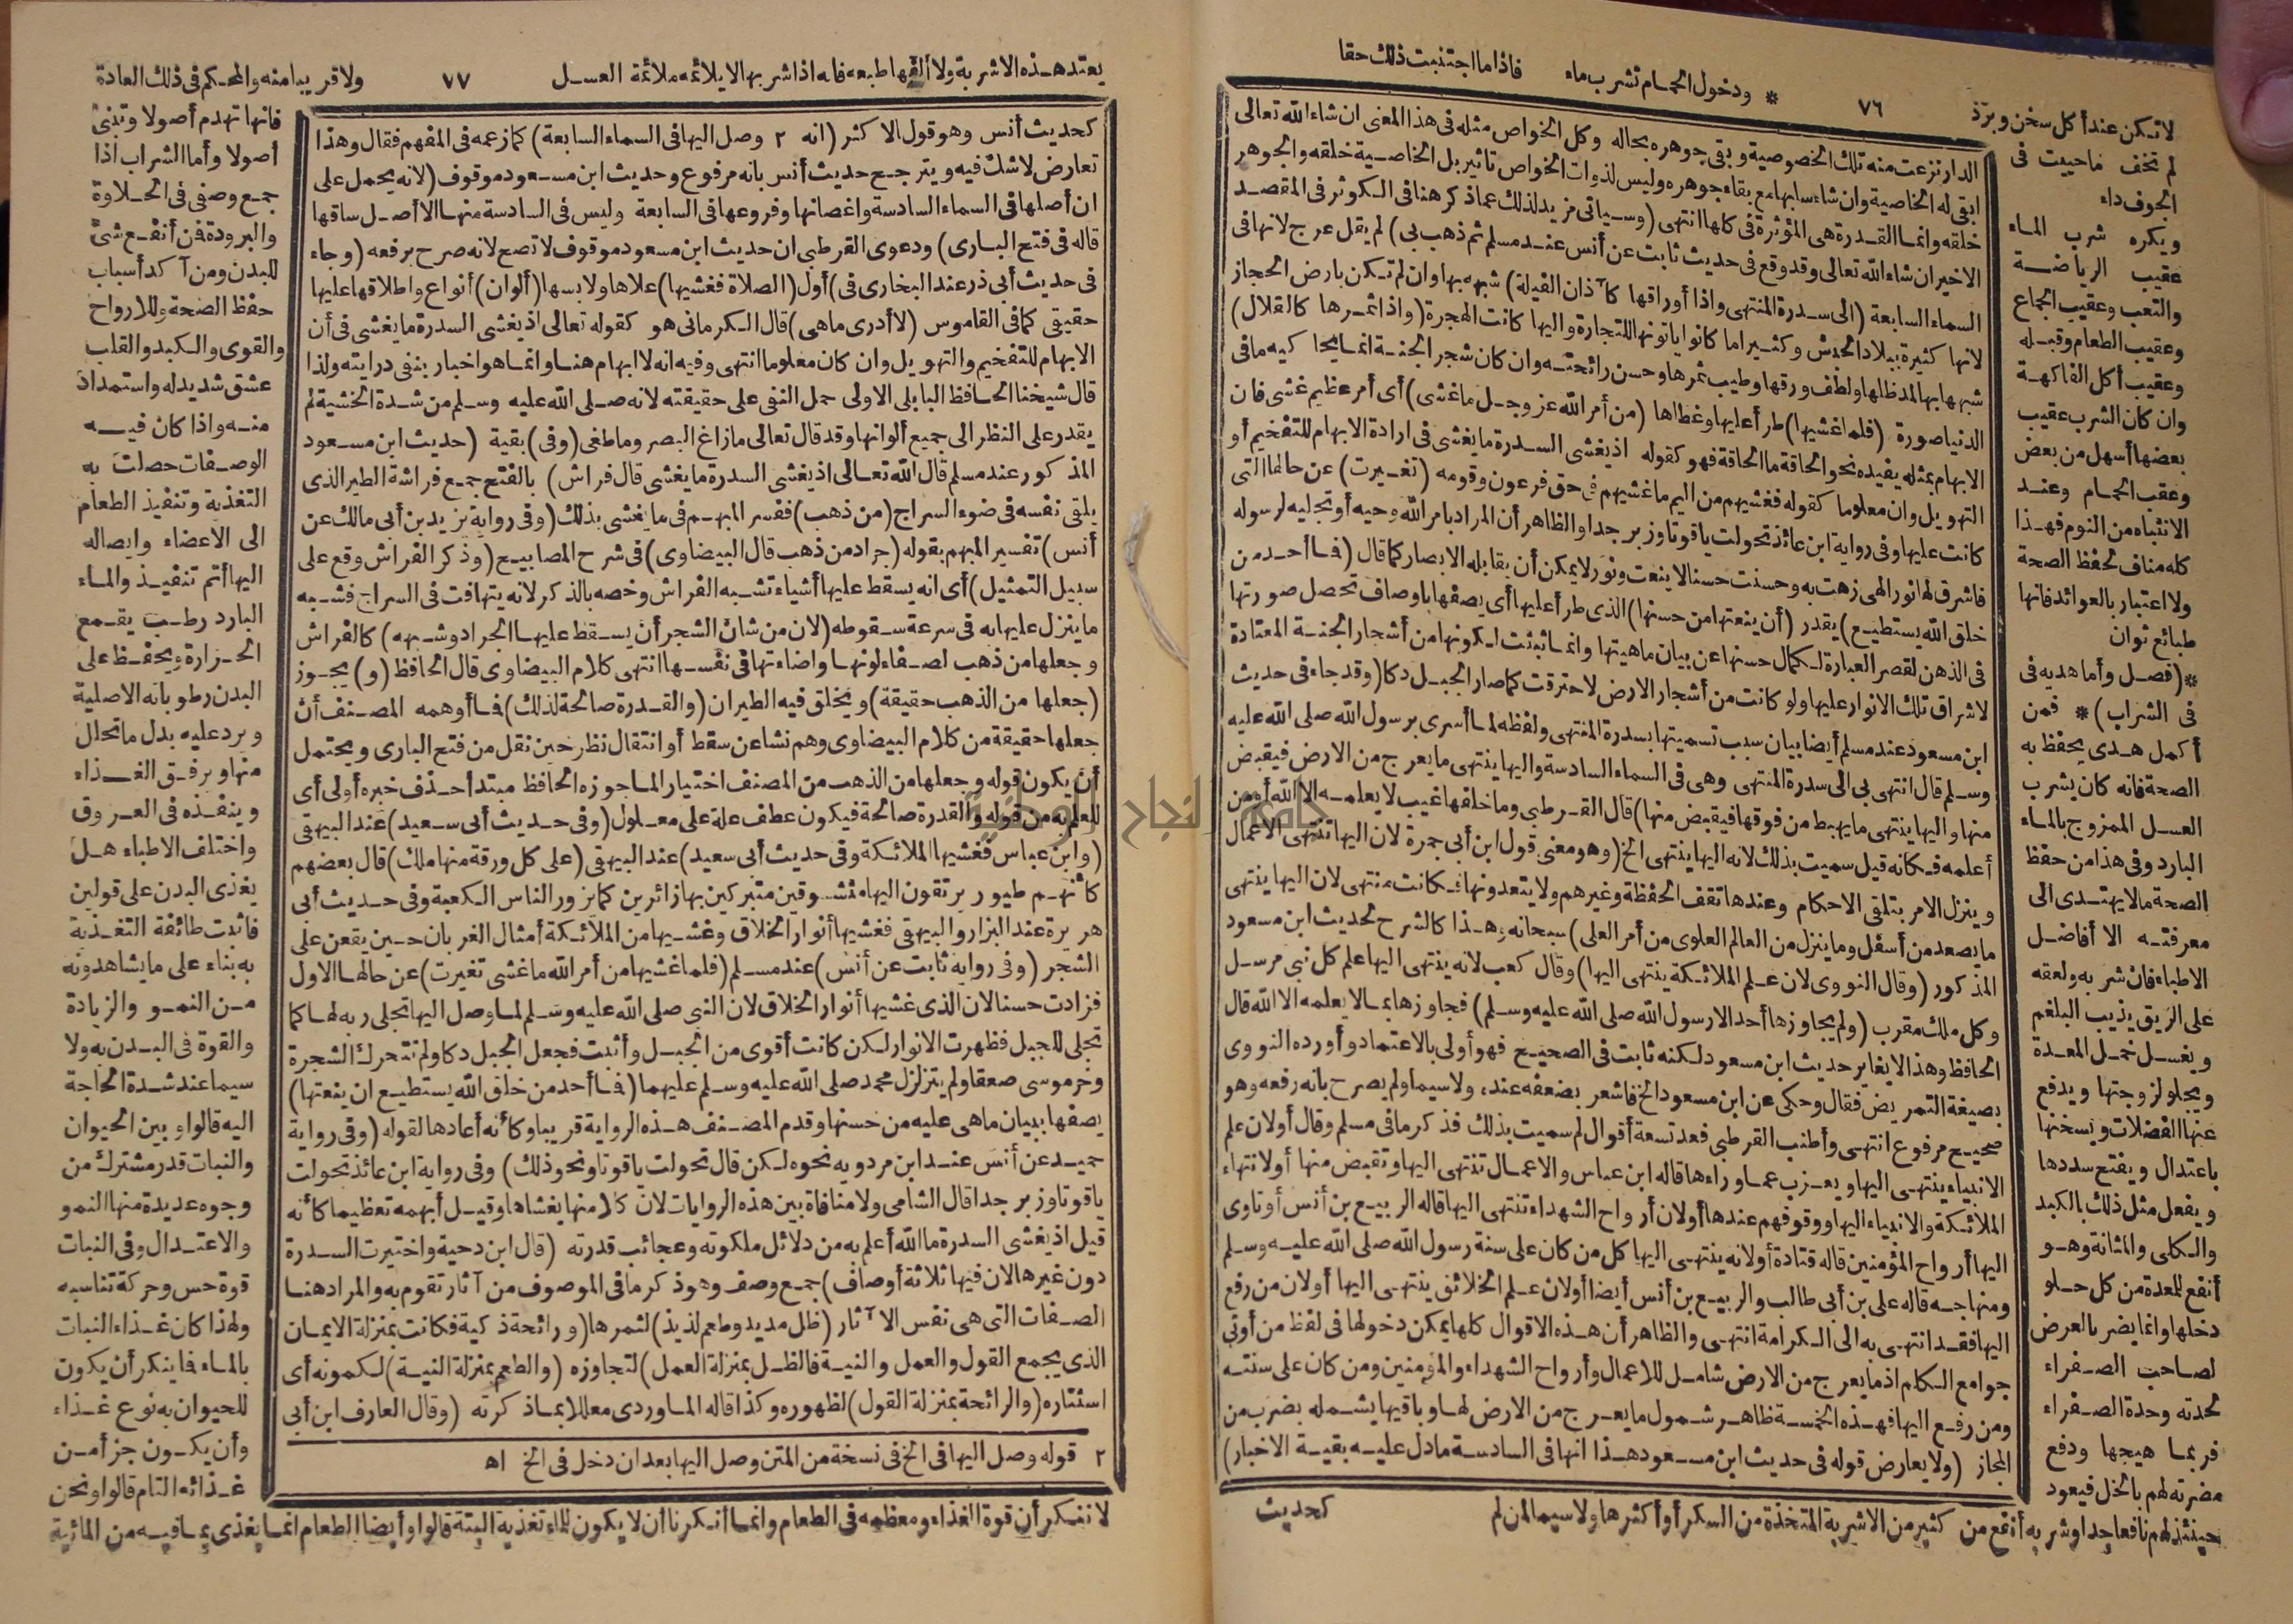 لا تكن عند أكل سخن وبرد ٧٦ * ودخول الحمام تشرب ماء فاذا ما اجتنبت ذلك حقا
لم تخف ما حييت فى
الجوف داء
ويكره شرب الماء
عقيب الرياضة
والتعب وعقيب الجماع
وعقيب الطعام وقبله
وعقيب أكل الفاكهة
وان كان الشرب عقيب
بعضها أسهل من بعض
وعقب الحمام وعند
الانتباه من النوم فهذا
كله مناف لحفظ الصحة
ولا اعتبار بالعوائد فانها
طبائع ثوان
*(فصل وأما هديه فى
فى الشراب)* فمن
أكمل هدى يحفظ به
الصحة فانه كان يشرب
العسل الممزوج بالماء
البارد وفى هذا من حفظ
الصحة مالا يهتدى الى
معرفته الا أفاضل
الاطباء فان شربه ولعقه
على الريق يذيب البلغم
ويغسل خمل المعدة
ويجلو لزوجتها ويدفع
عنها الفضلات ويسخنها
باعتدال ويفتح سددها
ويفعل مثل ذلك بالكبد
والكلى والمثانة وهو
أنفع للمعدة من كل حلو
دخلها وانما يضر بالعرض
لصاحب الصفراء
لحدته وحدة الصفراء
فربما هيجها ودفع
مضرته لهم بالخل فيعود
حينئذ لهم نافعا جدا وشربه أنفع من كثير من الاشربة المتخذة من السكر أو أكثرها ولا سيما لمن لم
الدار نزعت منه تلك الخصوصية وبقى جوهره بحاله وكل الخواص مثله فى هذا المعنى ان شاء الله تعالى
ابقى له الخاصية وان شاء سلبها مع بقاء جوهره وليس لذوات الخواص تأثير بل الخاصية خلقه والجوهر
خلقه وانما القدرة هى المؤثرة فى كلها انتهى (وسيأتى مزيد لذلك عماذكر هنا فى الكوثر فى المقصد
الاخير ان شاء الله تعالى وقد وقع فى حديث ثابت عن أنس عند مسلم ثم ذهب بى) لم يقل عرج لانها فى
السماء السابعة (الى سدرة المنتهى واذا أوراقها كآذان الفيلة) شبهه بها وان لم تكن بارض الحجاز
لانها كثيرة ببلاد الحبش وكثيرا ما كانوا يأتونها للتجارة واليها كانت الهجرة (واذا ثمرها كالقلال)
شبهها بها لمد ظلها ولطف ورقها وطيب ثمرها وحسن رائحته وان كان شجر الجنة انما يحاكيه ما فى
الدنيا صورة (فلما غشيها) طرأ عليها وغطاها (من أمر الله عز وجل ما غشى) أى أمر عظيم غشى فان
الابهام بمثله يفيده نحو الحاقة ما الحاقة فهو كقوله اذ يغشى السدرة ما يغشى فى ارادة الابهام للتفخيم أو
التهويل وان معلوما كقوله فغشيهم من اليم ما غشيهم فى حق فرعون وقومه (تغيرت) عن حالها التى
كانت عليها وفى رواية ابن عائذ تحولت ياقوتا وزبرجدا والظاهر أن المراد بامر الله وحيه أو تجليه لرسوله
فاشرق لها نور الهى زهت به وحسنت حسنا لا ينعت ونور لا يمكن أن يقابله الابصار كما قال (فما أحد من
خلق الله يستطيع) يقدر (أن ينعتها من حسنها) الذى طرأ عليها أى يصفها باوصاف تحصل صورتها
فى الذهن لقصر العبارة لكمال حسنها عن بيان ماهيتها وانما ثبتت لكونها من أشجار الجنة المعتادة
لاشراق تلك الانوار عليها ولو كانت من أشجار الارض لاحترقت كما صار الجبل دكا (وقد جاء فى حديث
ابن مسعود عند مسلم أيضا بيان سبب تسميتها بسدرة المنتهى ولفظه لما أسرى برسول الله صلى الله عليه
وسلم قال انتهى بى الى سدرة المنتهى وهى فى السماء السادسة واليها ينتهى ما يعرج من الارض فيقبض
منها واليها ينتهى ما يهبط من فوقها فيقبض منها) قال القرطبى وما خلفها غيب لا يعلمه الا الله أو من
أعلمه فكانه قيل سميت بذلك لانه اليها ينتهى الخ (وهو معنى قول ابن أبى جمرة لان اليها تنتهى الاعمال
وينزل الامر بتلقى الاحكام وعندها تقف الحفظة وغيرهم ولا يتعدونها فكانت منتهى لان اليها ينتهى
ما يصعد من أسفل وما ينزل من العالم العلوى من أمر العلى) سبحانه وهذا كالشرح لحديث ابن مسعود
المذكور (وقال النووى لان علم الملائكة ينتهى اليها) وقال كعب لانه ينتهى اليها علم كل نبى مرسل
وكل ملك مقرب (ولم يجاوزها أحد الا رسول الله صلى الله عليه وسلم) فجاوزها بما لا يعلمه الا الله قال
الحافظ وهذا لا يغاير حديث ابن مسعود لكنه ثابت فى الصحيح فهو أولى بالاعتماد وأورده النووى
بصيغة التمريض فقال وحكى عن ابن مسعود الخ فاشعر بضعفه عنده ولا سيما ولم يصرح بانه رفعه وهو
صحيح مرفوع انتهى وأطنب القرطبى فعد تسعة أقوال لم سميت بذلك فذكر ما فى مسلم وقال أو لان علم
الانبياء ينتهى اليها ويعزب عما وراءها قاله ابن عباس والاعمال تنتهى اليها وتقبض منها أو لانتهاء
الملائكة والانبياء اليها ووقوفهم عندها أو لان أرواح الشهداء تنتهى اليها قاله الربيع بن أنس أو تأوى
اليها أرواح المؤمنين قاله قتادة أو لانه ينتهى اليها كل من كان على سنة رسول الله صلى الله عليه وسلم
ومنهاجه قاله على بن أبى طالب والربيع بن أنس أيضا أو لان علم الخلائق ينتهى اليها أو لان من رفع
اليها فقد انتهى به الى الكرامة انتهى والظاهر أن هذه الاقوال كلها يمكن دخولها فى لفظ من أوتى
جوامع الكلم اذ ما يعرج من الارض شامل للاعمال وأرواح الشهداء والمؤمنين ومن كان على سنته
ومن رفع اليها فهذه الخمسة ظاهر شمول ما يعرج من الارض لها وباقيها يشمله بضرب من
المجاز (ولا يعارض قوله فى حديث ابن مسعود هذا انها فى السادسة ما دل عليه بقية الاخبار)
كحديث
يعتد هذه الاشربة ولا ألفها طبعه فانه اذا شربها لا يلائمه ملائمة العسل ٧٧ ولا قريبا منه والمحكم فى ذلك العادة
كحديث أنس وهو قول الاكثر (انه ٢ وصل اليها فى السماء السابعة) كما زعمه فى المفهم فقال وهذا
تعارض لا شك فيه ويترجح حديث أنس بانه مرفوع وحديث ابن مسعود موقوف (لانه يحمل على
ان أصلها فى السماء السادسة وأغصانها وفروعها فى السابعة وليس فى السادسة منها الا أصل ساقها
قاله فى فتح البارى) ودعوى القرطبى ان حديث ابن مسعود موقوف لا تصح لانه صرح برفعه (وجاء
فى حديث أبى ذر عند البخارى فى) أول (الصلاة فغشيها) علاها ولابسها (ألوان) أنواع واطلاقها عليها
حقيقى كما فى القاموس (لا أدرى ما هى) قال الكرمانى هو كقوله تعالى اذ يغشى السدرة ما يغشى فى أن
الابهام للتفخيم والتهويل وان كان معلوما انتهى وفيه انه لا ابهام هنا وانما هو اخبار بنفى درايته ولذا
قال شيخنا الحافظ البابلى الاولى حمل النفى على حقيقته لانه صلى الله عليه وسلم من شدة الخشية لم
يقدر على النظر الى جميع ألوانها وقد قال تعالى ما زاغ البصر وما طغى (وفى) بقية (حديث ابن مسعود
المذكور عند مسلم قال الله تعالى اذ يغشى السدرة ما يغشى قال فراش) بالفتح جمع فراشة الطير الذى
يلقى نفسه فى ضوء السراج (من ذهب) ففسر المبهم فى ما يغشى بذلك (وفى رواية يزيد بن أبى مالك عن
أنس) تفسير المبهم بقوله (جراد من ذهب قال البيضاوى) فى شرح المصابيح (وذكر الفراش وقع على
سبيل التمثيل) أى انه يسقط عليها أشياء تشبه الفراش وخصه بالذكر لانه يتهافت فى السراج فشبه
ما ينزل عليها به فى سرعة سقوطه (لان من شان الشجر أن يسقط عليها الجراد وشبهه) كالفراش
وجعلها من ذهب لصفاء لونها واضاءتها فى نفسها انتهى كلام البيضاوى قال الحافظ (و) يجوز
(جعلها من الذهب حقيقة) ويخلق فيه الطيران (والقدرة صالحة لذلك) فما أوهمه المصنف أن
جعلها حقيقة من كلام البيضاوى وهم نشا عن سقط أو انتقال نظر حين نقل من فتح البارى ويحتمل
أن يكون قوله وجعلها من الذهب من المصنف اختيار لما جوزه الحافظ مبتدأ حذف خبره أولى أى
للعلم به من قوله والقدرة صالحة فيكون عطف علة على معلول (وفى حديث أبى سعيد) عند البيهقى
(وابن عباس فغشيها الملائكة وفى حديث أبى سعيد) عند البيهقى (على كل ورقة منها ملك) قال بعضهم
كأنهم طيور يرتقون اليها متشوقين متبركين بها زائرين كما يزور الناس الكعبة وفى حديث أبى
هريرة عند البزار والبيهقى فغشيها أنوار الخلاق وغشيها من الملائكة أمثال الغربان حين يقعن على
الشجر (وفى رواية ثابت عن أنس) عند مسلم (فلما غشيها من أمر الله ما غشى تغيرت) عن حالها الاول
فزادت حسنا لان الذى غشيها أنوار الخلاق لان النبى صلى الله عليه وسلم لما وصل اليها تجلى ربه لها كما
تجلى للجبل فظهرت الانوار لكن كانت أقوى من الجبل وأثبت فجعل الجبل دكا ولم تتحرك الشجرة
وخر موسى صعقا ولم يتزلزل محمد صلى الله عليه وسلم عليهما (فما أحد من خلق الله يستطيع ان ينعتها)
يصفها ببيان ما هى عليه من حسنها وقدم المصنف هذه الرواية قريبا وكأنه أعادها لقوله (وفى رواية
حميد عن أنس عند ابن مردويه نحوه لكن قال تحولت ياقوتا ونحو ذلك) وفى رواية ابن عائذ تحولت
ياقوتا وزبرجدا قال الشامى ولا منافاة بين هذه الروايات لان كلا منها يغشاها وقيل أبهمه تعظيما كأنه
قيل اذ يغشى السدرة ما الله أعلم به من دلائل ملكوته وعجائب قدرته (قال ابن دحية واختيرت السدرة
دون غيرها لان فيها ثلاثة أوصاف) جمع وصف وهو ذكر ما فى الموصوف من آثار تقوم به والمراد هنا
الصفات التى هى نفس الآثار (ظل مديد وطعم لذيذ) لثمرها (ورائحة ذكية فكانت بمنزلة الايمان
الذى يجمع القول والعمل والنية فالظل بمنزلة العمل) لتجاوزه (والطعم بمنزلة النية) لكمونه أى
استتاره (والرائحة بمنزلة القول) لظهوره وكذا قاله الماوردى معللا بما ذكرته (وقال العارف ابن أبى
٢ قوله وصل اليها فى الخ فى نسخة من المتن وصل اليها بعد ان دخل فى الخ اه
فانها تهدم أصولا وتبنى
أصولا وأما الشراب اذا
جمع وصفى الحلاوة
والبرودة فمن أنفع شئ
للبدن ومن آكد أسباب
حفظ الصحة وللارواح
والقوى والكبد والقلب
عشق شديد له واستمداد
منه واذا كان فيه
الوصفان حصلت به
التغذية وتنفيذ الطعام
الى الاعضاء وايصاله
اليها أتم تنفيذ والماء
البارد رطب يقمع
الحرارة ويحفظ على
البدن رطوباته الاصلية
ويرد عليه بدل ما تحلل
منها ويرفق الغذاء
وينفذه فى العروق
واختلف الاطباء هل
يغذى البدن على قولين
فاثبت طائفة التغذية
به بناء على ما يشاهدونه
من النمو والزيادة
والقوة فى البدن به ولا
سيما عند شدة الحاجة
اليه قالوا وبين الحيوان
والنبات قدر مشترك من
وجوه عديدة منها النمو
والاعتدال وفى النبات
قوة حس وحركة تناسبه
ولهذا كان غذاء النبات
بالماء فما ينكر أن يكون
للحيوان به نوع غذاء
وأن يكون جزأ من
غذائه التام قالوا ونحن
لا ننكر أن قوة الغذاء ومعظمه فى الطعام وانما أنكرنا أن لا يكون للماء تغذية البتة قالوا وأيضا الطعام انما يغذى بما فيه من المائية